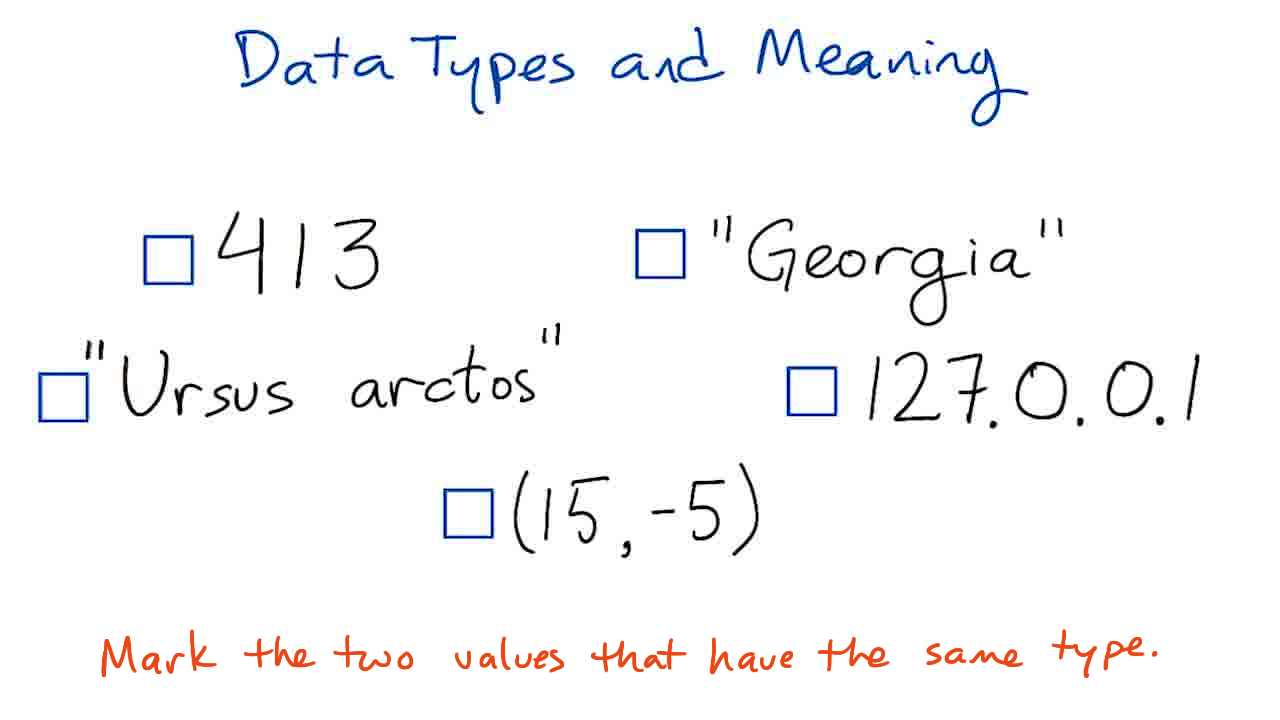 Data Types and Meaning
413
"Georgia"
"Ursus arctos"
127.0.0.1
(15, -5)
Mark the two values that have the same type.